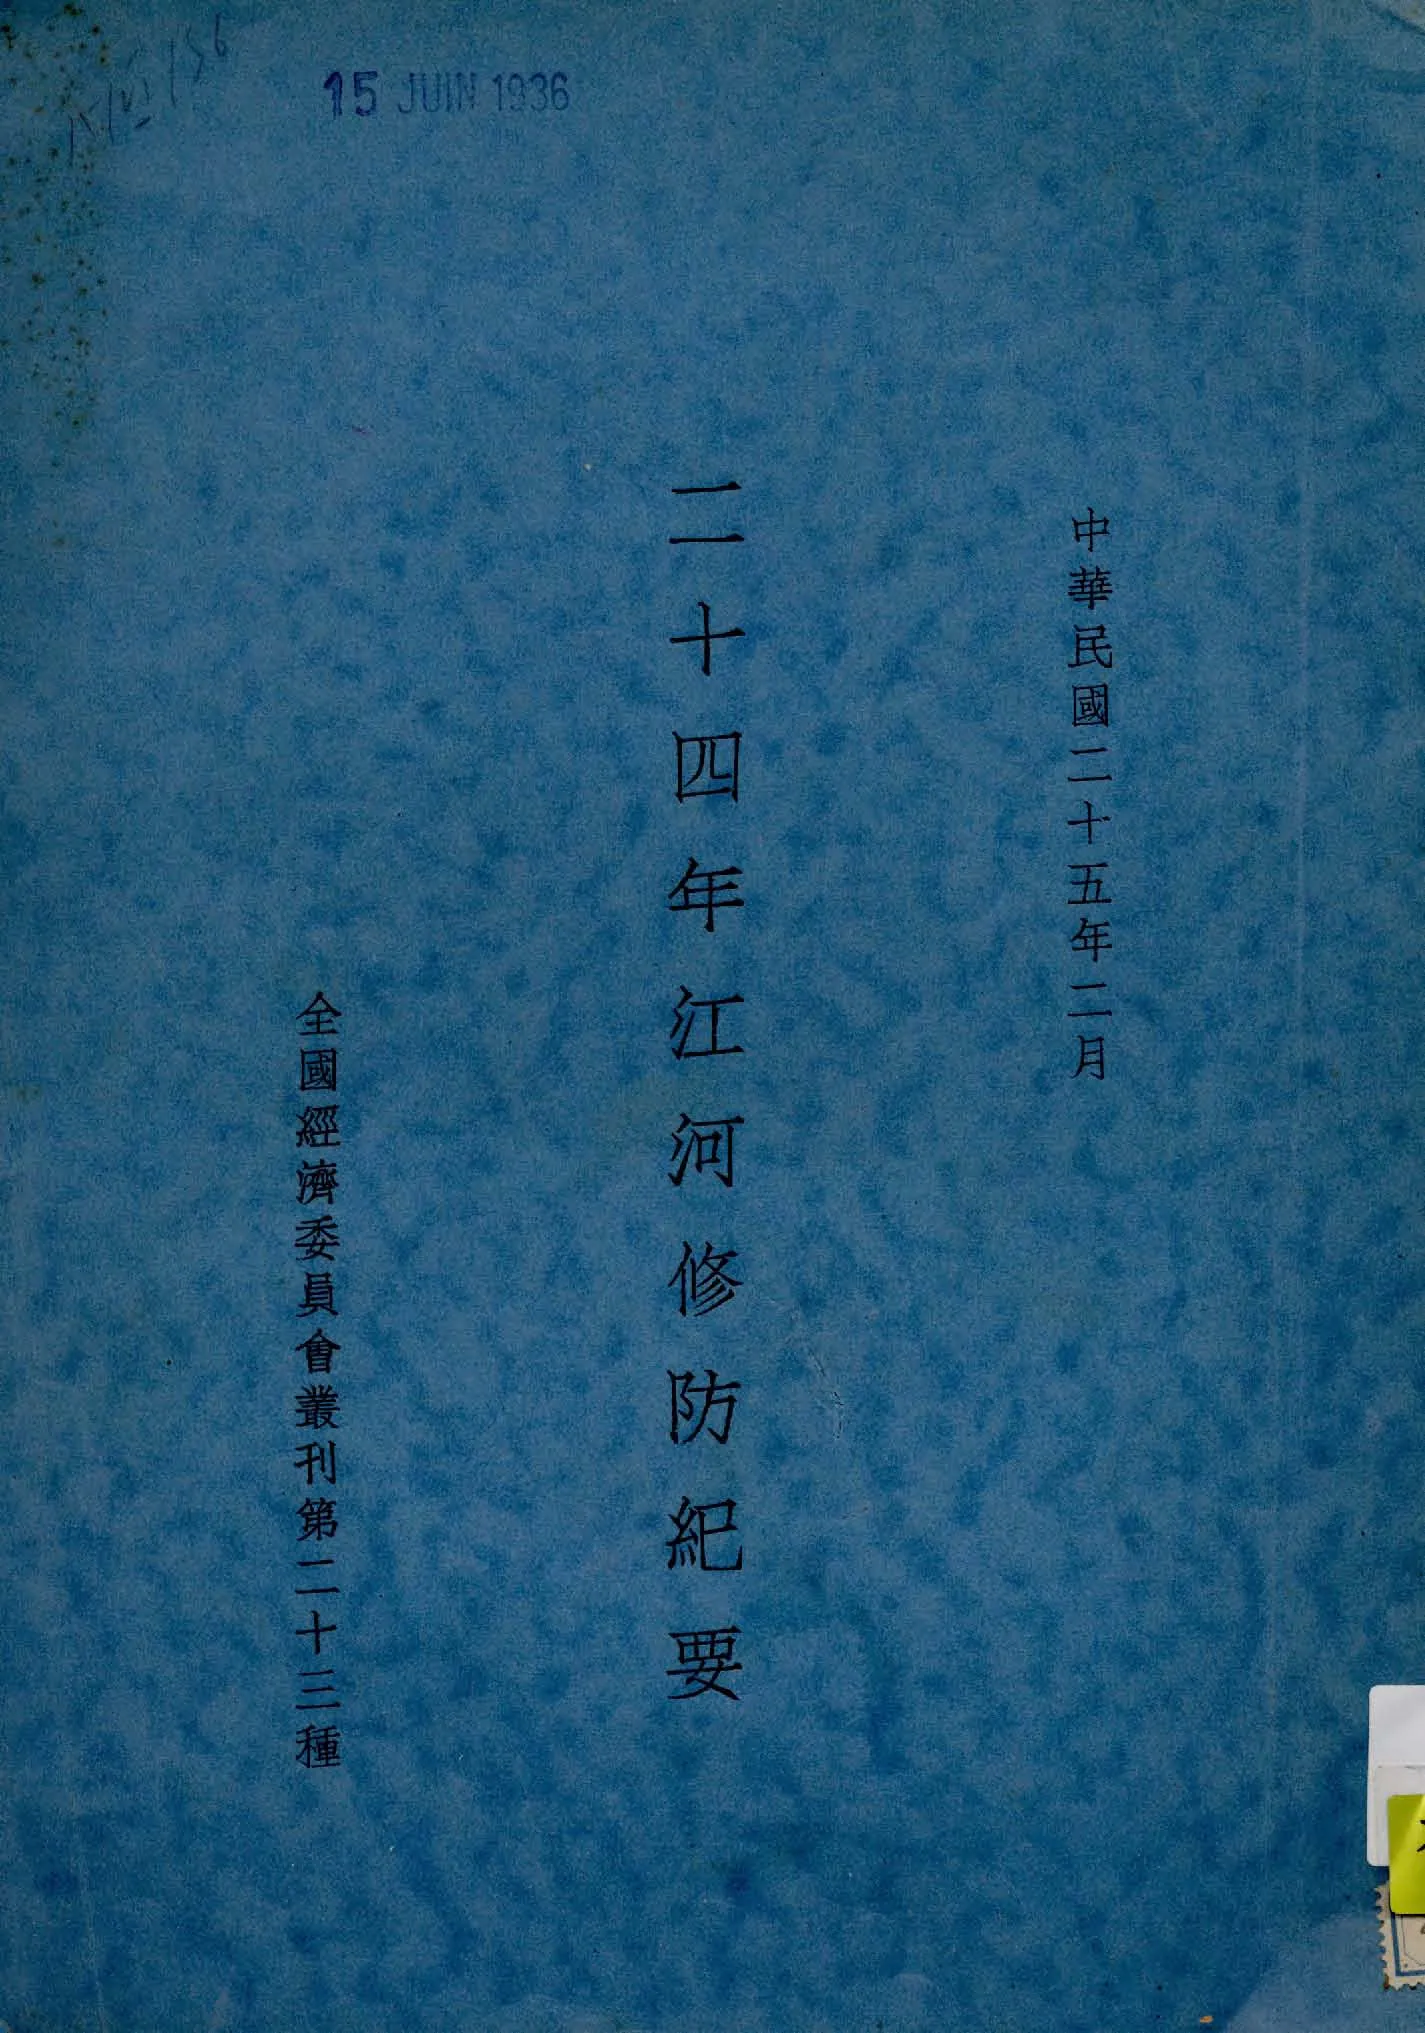 15 JUIN 1936
中華民國二十五年二月
二十四年江河修防紀要
全國經濟委員會叢刊第二十三種